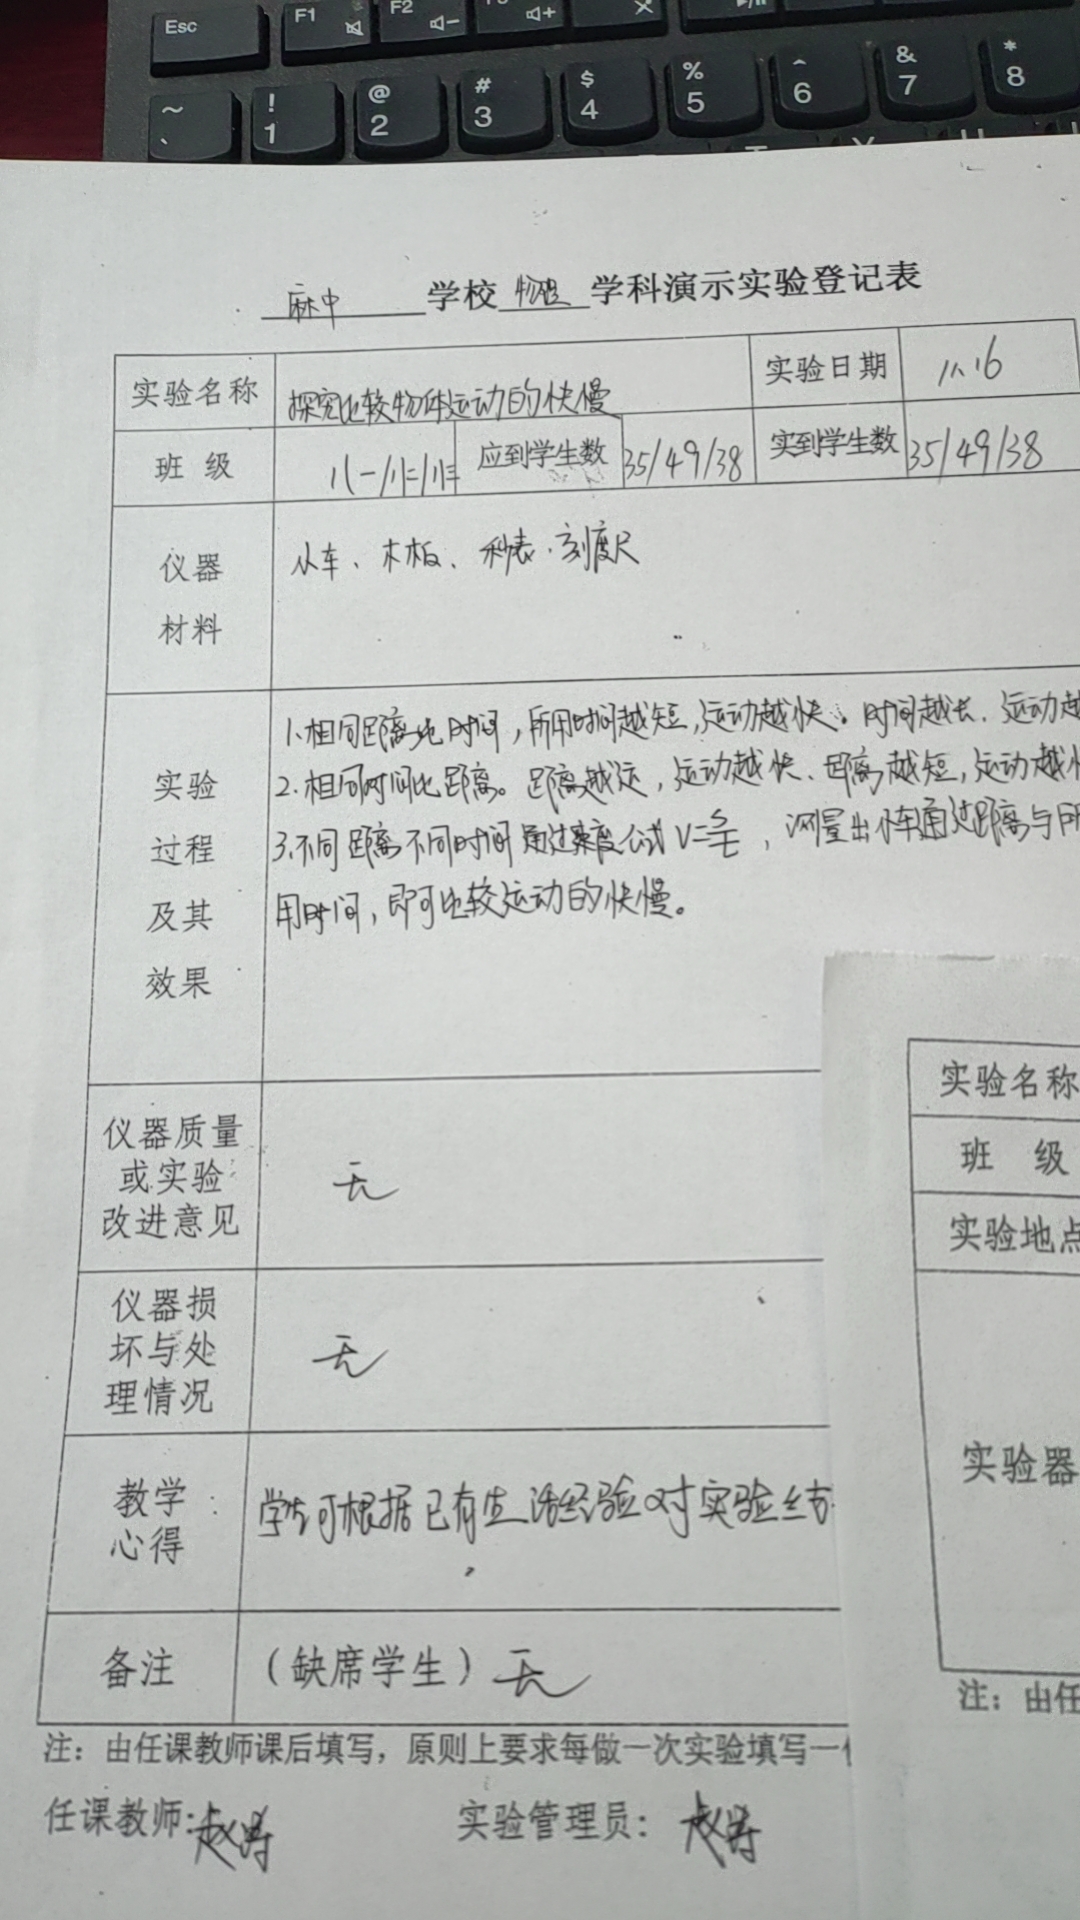 Esc F1 F2
~ ! @ # $ % ^ & *
` 1 2 3 4 5 6 7 8
麻中 学校 物理 学科演示实验登记表
实验名称 探究比较物体运动的快慢 实验日期 11.16
班 级 应到学生数 35/49/38 实到学生数 35/49/38
仪器
材料
小车、木板、秒表.刻度尺
实验
过程
及其
效果
1.相同距离比时间,所用时间越短,运动越快。时间越长.运动越
2.相同时间比距离。距离越远,运动越快、距离越短,运动越
3.不同距离不同时间通过速度公式 V=s/t ,测量出小车通过距离与所
用时间,即可比较运动的快慢。
仪器质量
或实验
改进意见
无
仪器损
坏与处
理情况
无
教学
心得
学生可根据已有生活经验对实验
备注 (缺席学生) 无
注:由任课教师课后填写,原则上要求每做一次实验填写一
任课教师: 实验管理员:
实验名称
班 级
实验地点
实验器
注:由任